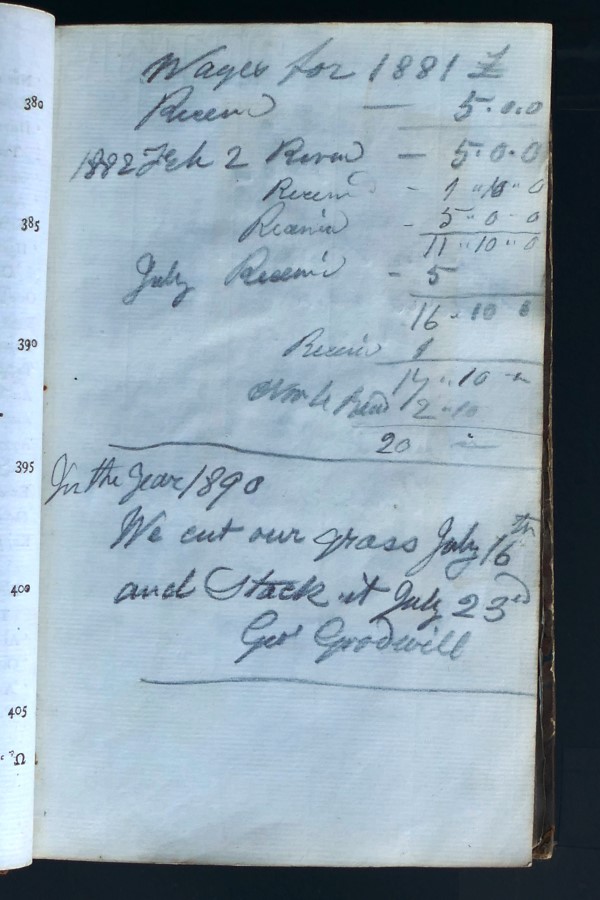 Wages for 1881 £
Receivd — 5.0.0
1882 Feb 2 Receivd — 5.0.0
Receivd - 1 " 10 " 0
Receivd - 5 " 0 - 0
11 " 10 " 0
July Receivd - 5
16 - 10 0
Receivd 1
17 " 10 -
2 - 10
20
In the Year 1890
We cut our grass July 16th
and Stack it July 23rd
Geo Goodwill
380
385
390
395
400
405